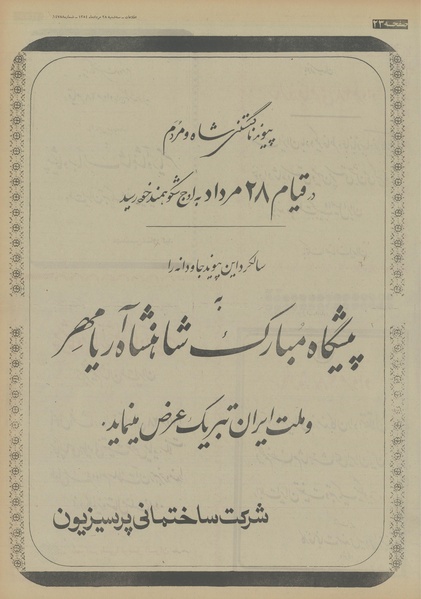 صفحه ۲۳
پیوند ناگسستنی شاه و مردم
در قیام ۲۸ مرداد به اوج شکوهمند خود رسید
سالگرد این پیوند جاودانه را
به
پیشگاه مبارک شاهنشاه آریامهر
و ملت ایران تبریک عرض مینماید.
شرکت ساختمانی پرسیزیون